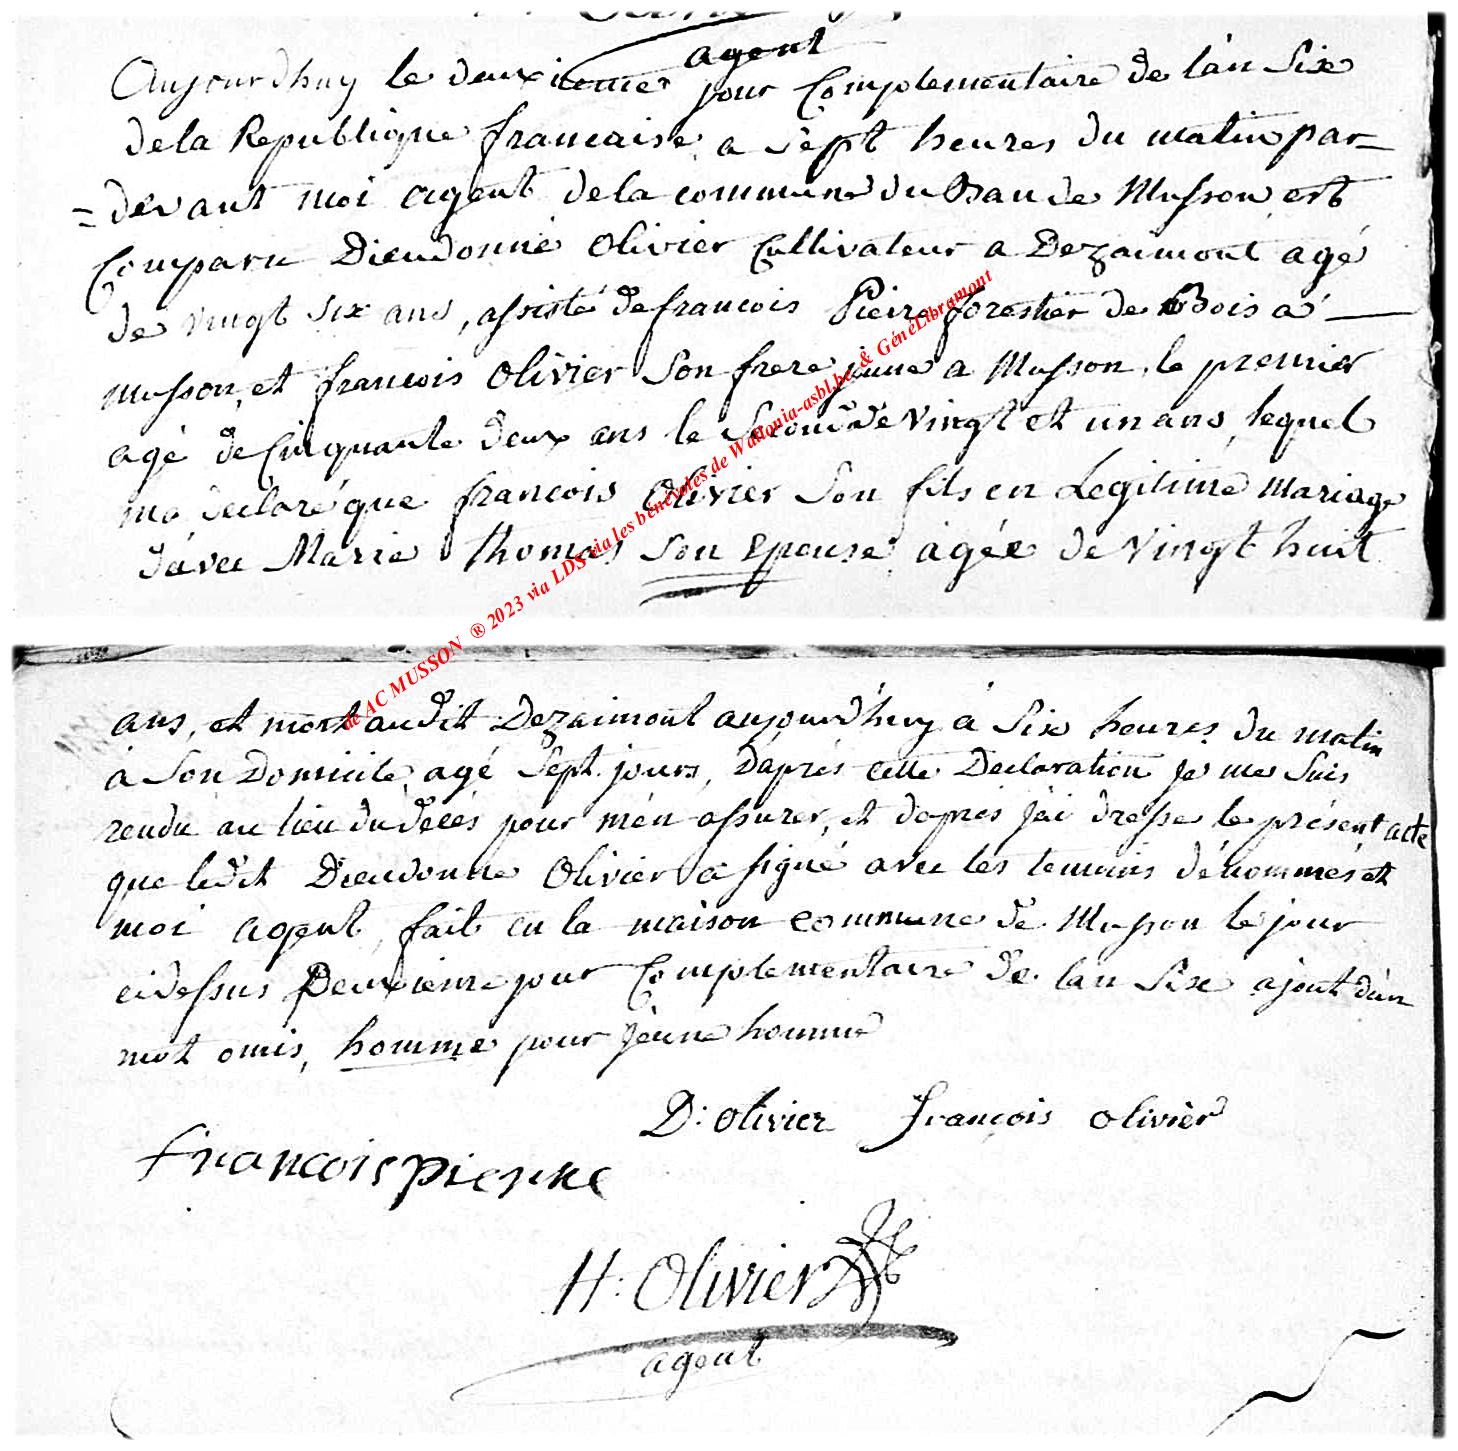 agent
Aujourdhuy le deuxieme jour Complementaire de l'an Six
de la Republique francaise a sept heures du matin par=
=devant moi agent de la commune du Ban de Musson est
Comparu Dieudonné Olivier Cultivateur a Dezaimont agé
de vingt six ans, assisté de francois Pieire forestier de Bois a
Musson, et francois Olivier Son frere jeune a Musson, le premier
agé de Cinquante deux ans le Second de vingt et un ans, lequel
ma declaré que francois Olivier Son fils en Legitime Mariage
d'avec Marie thomas Son Epouse agée de vingt huit
ans, et mort audit Dezaimont aujourd'huy a Six heures du matin
a Son Domicile agé Sept jours, D'aprés cette Declaration je me Suis
rendu au lieu du décés pour m'en assurer, et d'aprés j'ai dressé le présent acte
que ledit Dieudonne Olivier a signé avec les temoins dénommés et
moi agent, fait en la maison commune de Musson le jour
cidessus Deuxieme jour Complementaire de lan Six ajout d'un
mot omis, homme pour jeune homme
D: olivier françois olivièr
francois pierre
H: Olivier
agent
de AC MUSSON ® 2023 via LDS via les bénévoles de Wallonia-asbl.be & GénéLibramont